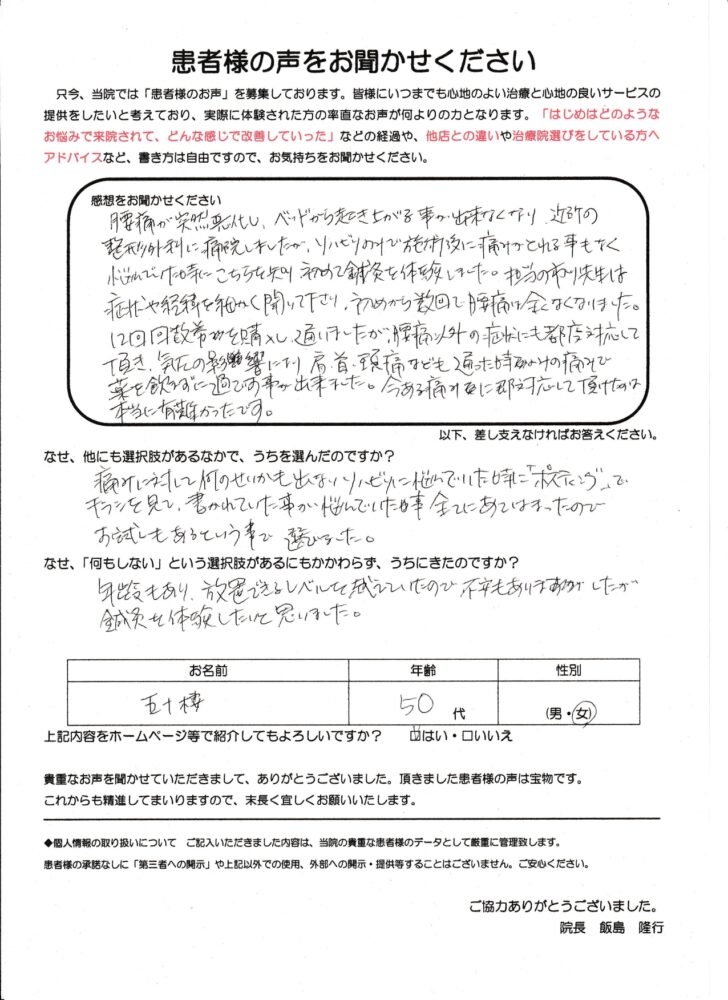 患者様の声をお聞かせください
只今、当院では「患者様のお声」を募集しております。皆様にいつまでも心地のよい治療と心地の良いサービスの
提供をしたいと考えており、実際に体験された方の率直なお声が何よりの力となります。「はじめはどのような
お悩みで来院されて、どんな感じで改善していった」などの経過や、他店との違いや治療院選びをしている方へ
アドバイスなど、書き方は自由ですので、お気持ちをお聞かせください。
感想をお聞かせください
腰痛が突然悪化し、ベッドから起き上がる事が出来なくなり、近所の
整形外科に通院しましたが、リハビリのみで施術後に痛みがとれる事もなく
悩んでいた時にこちらを知り初めて鍼灸を体験しました。担当の市川先生は
症状や経緯を細かく聞いて下さり、初めから数回で腰痛は全くなくなりました。
12回回数券を購入し、通いましたが、腰痛以外の症状にも都度対応して
頂き、気圧の影響による肩、首、頭痛なども通った時の痛みで
薬を飲まずに過ごす事が出来ました。今ある痛みに都度対応して頂けたのは
本当に有難かったです。
以下、差し支えなければお答えください。
なぜ、他にも選択肢があるなかで、うちを選んだのですか？
痛みに対して何のせいかも出ないリハビリに悩んでいた時に「ポスティング」で
チラシを見て、書かれていた事が悩んでいた事全てにあてはまったので
お試しもあるという事で選びました。
なぜ、「何もしない」という選択肢があるにもかかわらず、うちにきたのですか？
年齢もあり、放置できるレベルを越えていたので不安もありましたが
鍼灸を体験したいと思いました。
お名前 年齢 性別
五十棲 50代 (男・女)
上記内容をホームページ等で紹介してもよろしいですか？ ☑はい・□いいえ
貴重なお声を聞かせていただきまして、ありがとうございました。頂きました患者様の声は宝物です。
これからも精進してまいりますので、末長く宜しくお願いいたします。
◆個人情報の取り扱いについて ご記入いただきました内容は、当院の貴重な患者様のデータとして厳重に管理致します。
患者様の承諾なしに「第三者への開示」や上記以外での使用、外部への開示・提供等することはございません。ご安心ください。
ご協力ありがとうございました。
院長 飯島 隆行